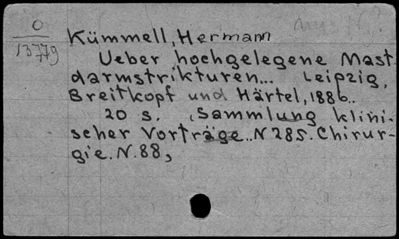 O
13779
Kümmell, Hermann
Ueber hochgelegene Mast
darmstrikturen... Leipzig,
Breitkopf und Härtel, 1886..
20 s. (Sammlung klini-
scher Vorträge.. N 285. Chirur-
gie. N. 88,